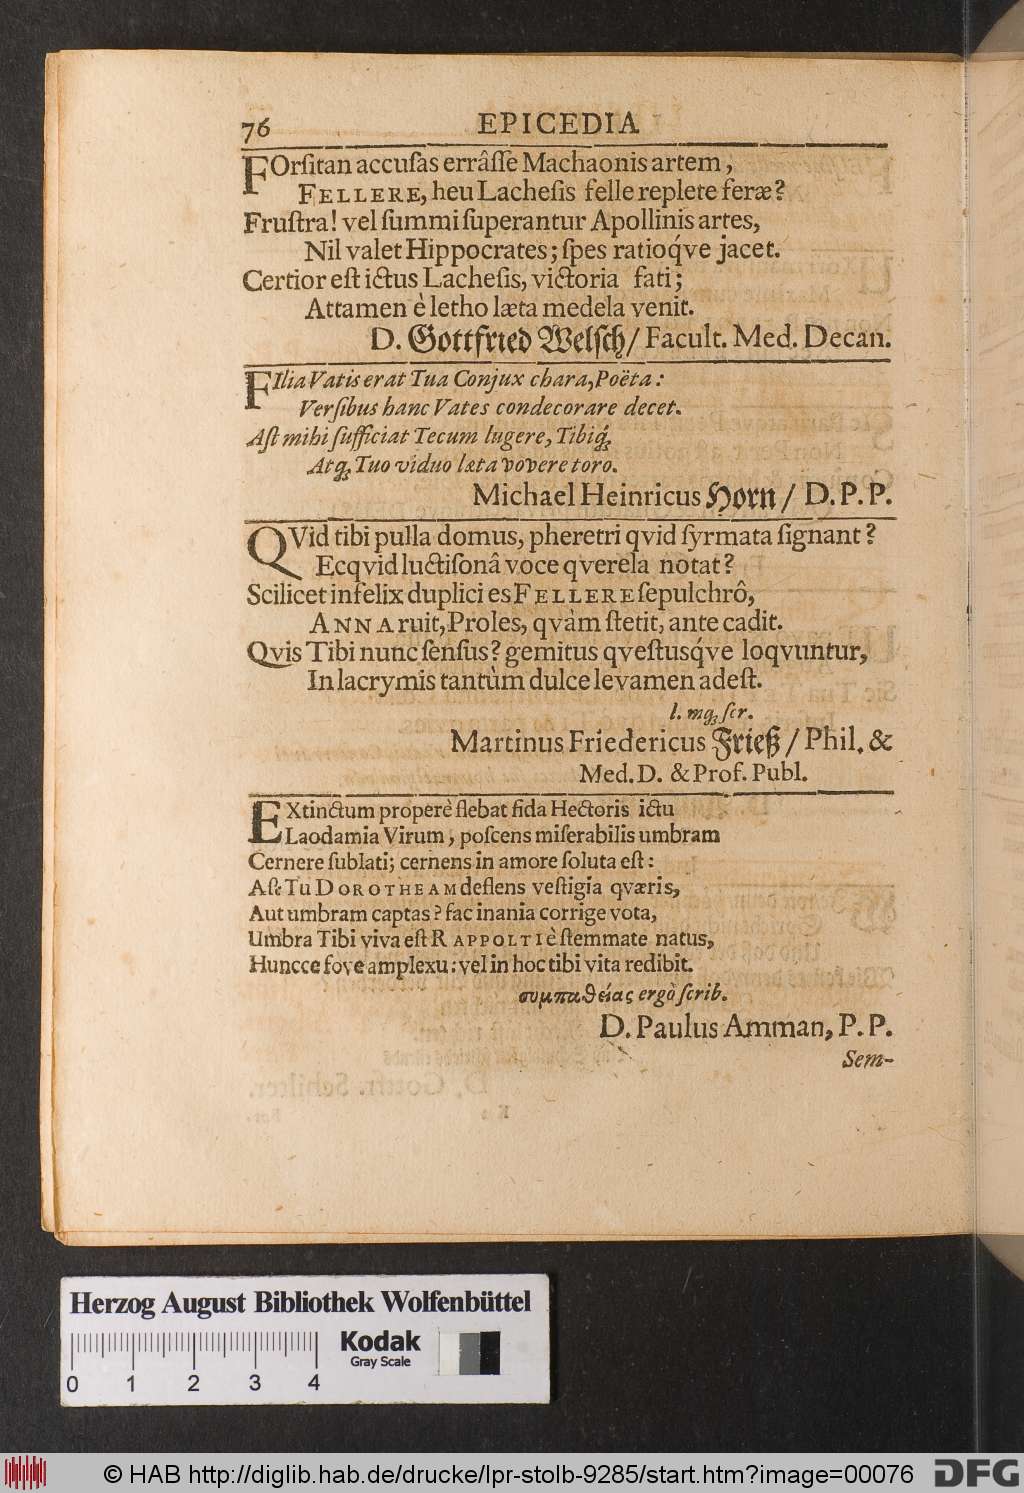 76 EPICEDIA
FOrſitan accuſas errâſſe Machaonis artem,
FELLERE, heu Lacheſis felle replete feræ?
Fruſtra! vel ſummi ſuperantur Apollinis artes,
Nil valet Hippocrates; ſpes ratioq́ve jacet.
Certior eſt ictus Lacheſis, victoria fati;
Attamen è letho læta medela venit.
D. Gottfried Welſch/ Facult. Med. Decan.
FIlia Vatis erat Tua Conjux chara, Poëta:
Verſibus hanc Vates condecorare decet.
Aſt mihi ſufficiat Tecum lugere, Tibiq́;
Atq; Tuo viduo læta vovere toro.
Michael Heinricus Horn / D. P. P.
QVid tibi pulla domus, pheretri qvid ſyrmata ſignant?
Ecqvid luctiſonâ voce qverela notat?
Scilicet infelix duplici es FELLERE ſepulchrô,
ANNA ruit, Proles, qvàm ſtetit, ante cadit.
Qvis Tibi nunc ſenſus? gemitus qveſtusq́ve loqvuntur,
In lacrymis tantùm dulce levamen adeſt.
l. mq; ſcr.
Martinus Friedericus Frieß / Phil. &
Med. D. & Prof. Publ.
EXtinctum properè flebat fida Hectoris ictu
Laodamia Virum, poſcens miſerabilis umbram
Cernere ſublati; cernens in amore ſoluta eſt:
Aſt Tu DOROTHEAM deflens veſtigia qværis,
Aut umbram captas? fac inania corrige vota,
Umbra Tibi viva eſt RAPPOLTI è ſtemmate natus,
Huncce fove amplexu: vel in hoc tibi vita redibit.
συμπαθείας ergò ſcrib.
D. Paulus Amman, P. P.
Sem-
Herzog August Bibliothek Wolfenbüttel
Kodak
Gray Scale
0 1 2 3 4
© HAB http://diglib.hab.de/drucke/lpr-stolb-9285/start.htm?image=00076
DFG